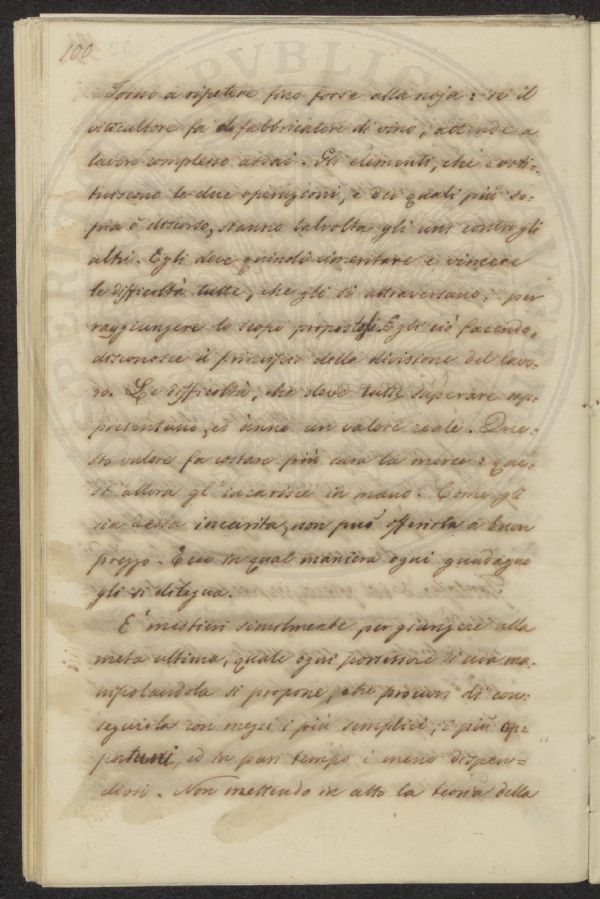 100
Torno a ripetere fino forse alla noja: se il
viticultore fa da fabbricatore di vino, attende a
lavoro complesso assai. Gli elementi, che costi-
tuiscono le due operazioni, e dei quali più so-
pra è discorso, stanno talvolta gli uni contro gli
altri. Egli deve quindi cimentare e vincere
le difficoltà tutte, che gli si attraversano, per
raggiungere lo scopo propostosi. Egli ciò facendo,
disconosce il principio della divisione del lavo-
ro. Le difficoltà, che deve tutte superare rap-
presentano, ed ànno un valore reale. Que-
sto valore fa costare più cara la merce: que-
st' allora gl' incarisce in mano. Come gli
sia incarita, non può offerirla a buon
prezzo. Ecco in qual maniera ogni guadagno
gli si dilegua.
E' mestieri similmente per giungere alla
meta ultima, quale ogni possessore di uva ma-
nipolandola si propone, che procuri di con-
seguirla con mezzi i più semplici, i più op-
portuni, ed in pari tempo i meno dispen-
diosi. Non mettendo in atto la teoria della